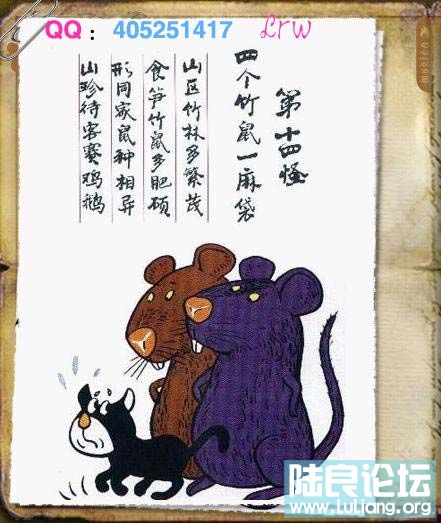 QQ：405251417 Lrw
第十四怪
四个竹鼠一麻袋
山区竹林多繁茂
食笋竹鼠多肥硕
形同家鼠种相异
山珍待客赛鸡鹅
陆良论坛
www.luliang.org